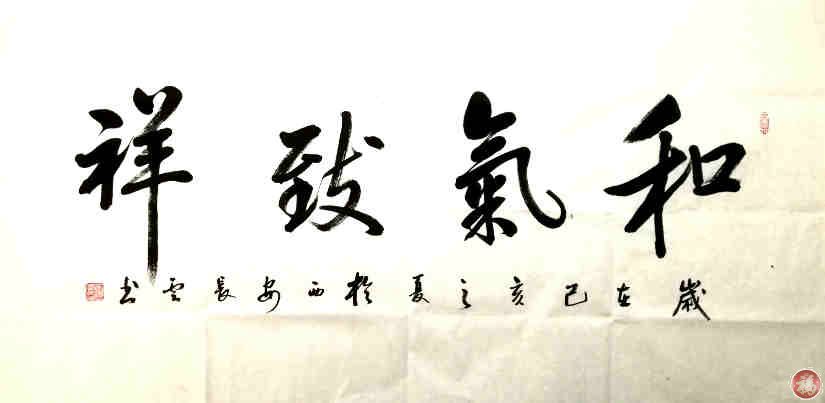 和氣致祥
歲在己亥之夏於西安長雲书